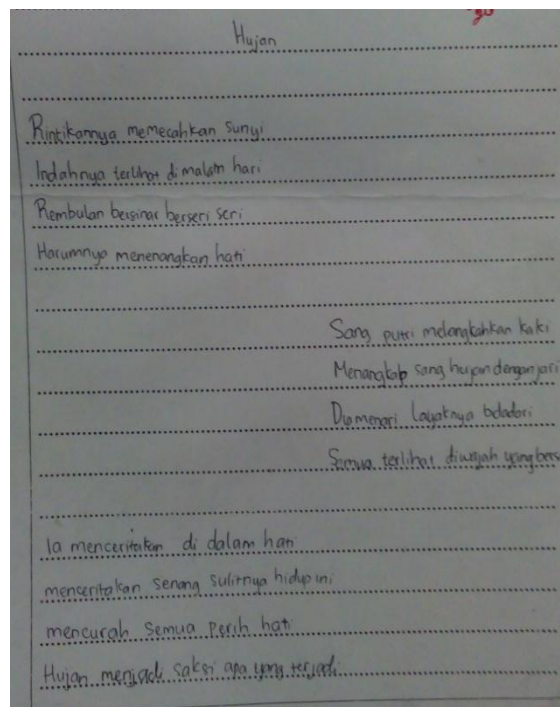 30
Hujan
Rintikannya memecahkan sunyi
Indahnya terlihat di malam hari
Rembulan bersinar berseri seri
Harumnya menenangkan hati
Sang putri melangkahkan kaki
Menangkap sang hujan dengan jari
Dia menari layaknya bidadari
Semua terlihat diwajah yang bers
Ia menceritakan di dalam hati
menceritakan senang sulitnya hidup ini
mencurah semua perih hati
Hujan menjadi saksi apa yang terjadi